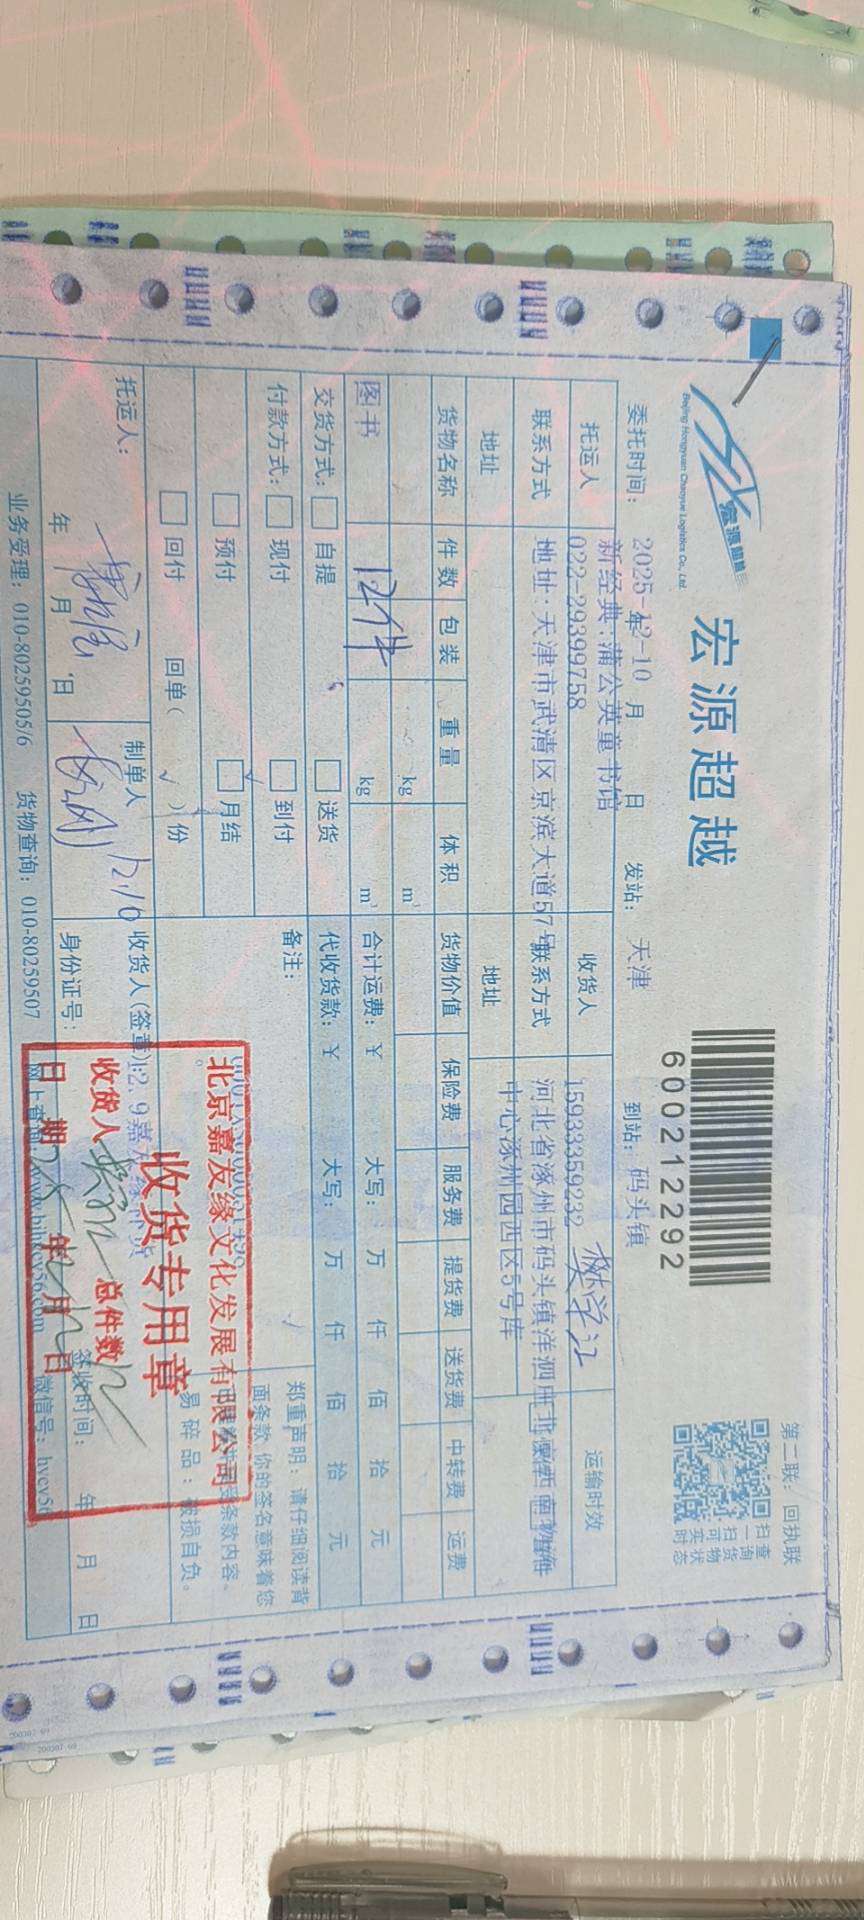 宏源超越
Beijing Hongyuan Chaoyue Logistics Co., Ltd.
宏源超越
600212292
第二联：回执联
扫一扫可实时
查询货物状态
委托时间：2025-12-10
年 月 日
发站：天津
到站：码头镇
托运人
新经典：蒲公英童书馆
收货人
运输时效
联系方式
022-29399758
联系方式
15933359232 樊学江
地址
地址：天津市武清区京滨大道57号
地址
河北省涿州市码头镇洋泗庄
中心涿州园西区5号库
货物名称 件数 包装 重量 体积 货物价值 保险费 服务费 提货费 送货费 中转费 运费
kg m³
图书 12件 kg m³
合计运费：￥ 大写： 万 仟 佰 拾 元
交货方式： 自提 送货
代收货款：￥ 大写： 万 仟 佰 拾 元
付款方式： 现付 到付
备注：
预付 月结
回付 回单（ ）份
郑重声明：请仔细阅读背
面条款 你的签名意味着您
受条款内容。
易碎品：破损自负。
托运人：
年 月 日
制单人
12.10
收货人(签章)：
身份证号：
签收时间： 年 月 日
北京嘉友缘文化发展有限公司
收货专用章
收货人 总件数 12
日期 年 月 日
业务受理：010-80259505/6
货物查询：010-80259507
网上查询：www.bjhycy56.com
微信号：hycy56